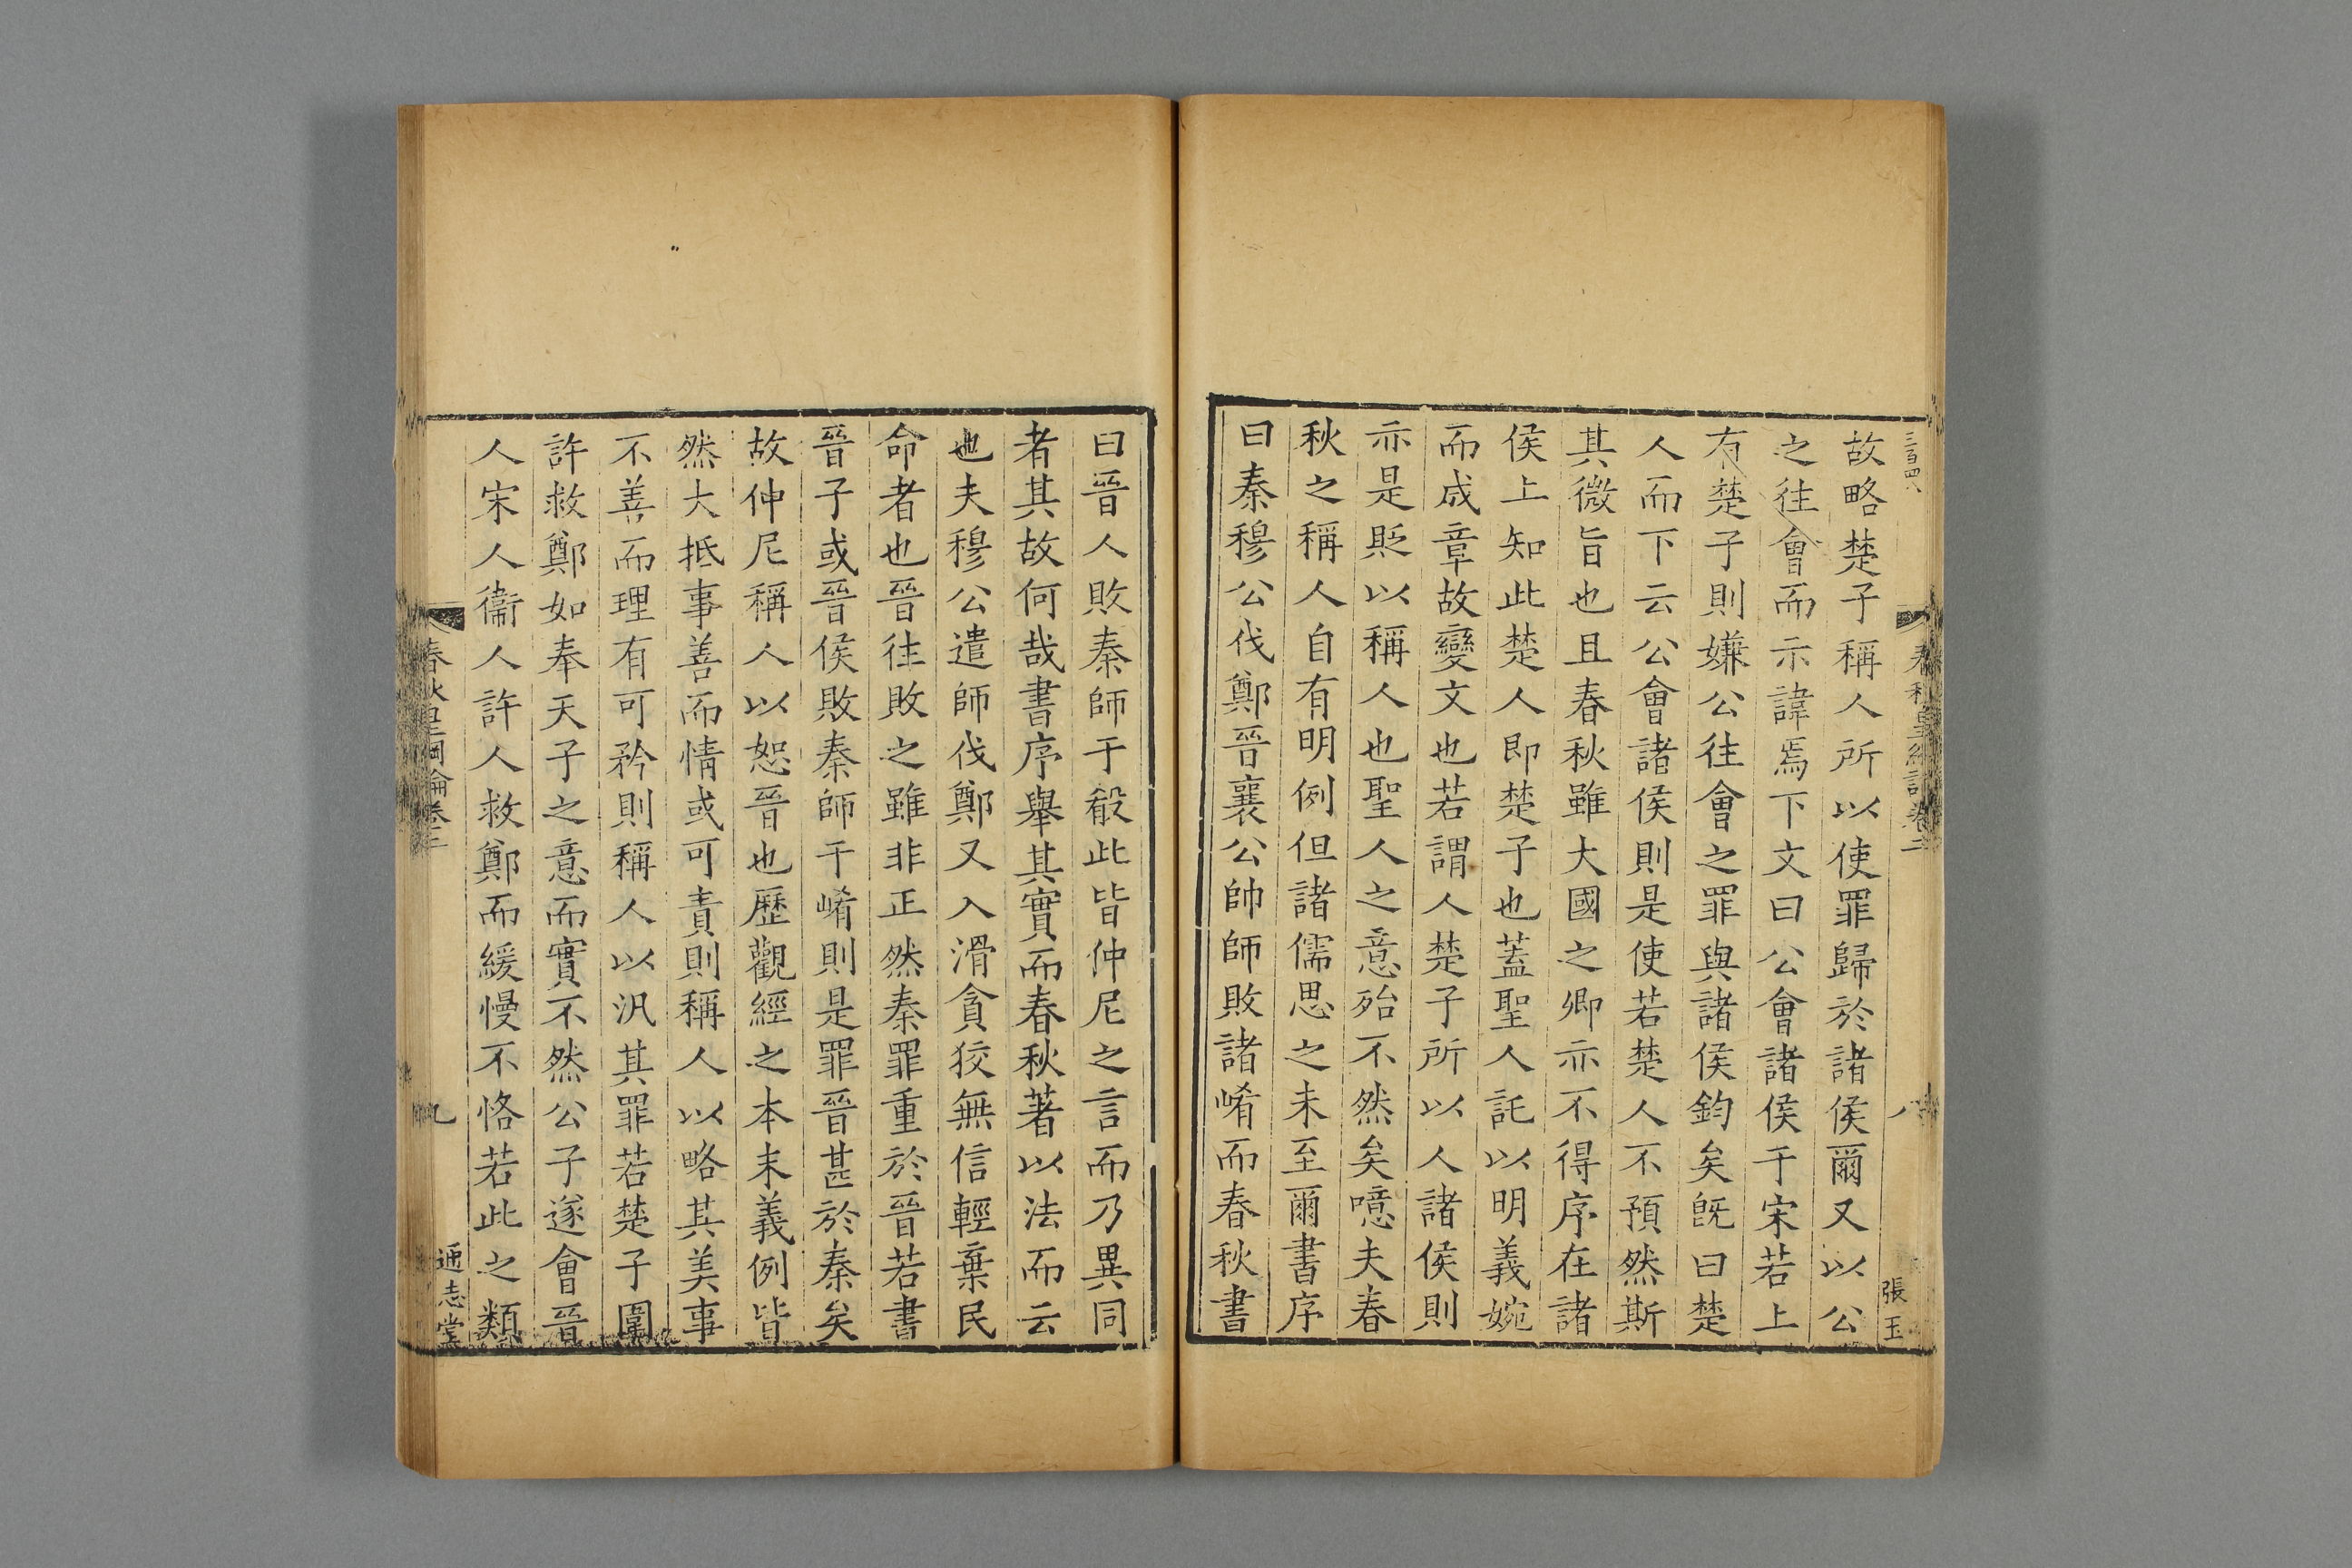 三百四八
春秋皇綱論卷三
八
張玉
故略楚子稱人所以使罪歸於諸侯爾又以公
之往會而示諱焉下文曰公會諸侯于宋若上
有楚子則嫌公往會之罪與諸侯鈞矣旣曰楚
人而下云公會諸侯則是使若楚人不預然斯
其微旨也且春秋雖大國之卿亦不得序在諸
侯上知此楚人即楚子也蓋聖人託以明義婉
而成章故變文也若謂人楚子所以人諸侯則
亦是貶以稱人也聖人之意殆不然矣噫夫春
秋之稱人自有明例但諸儒思之未至爾書序
曰秦穆公伐鄭晉襄公帥師敗諸崤而春秋書
曰晉人敗秦師于殽此皆仲尼之言而乃異同
者其故何哉書序舉其實而春秋著以法而云
也夫穆公遣師伐鄭又入滑貪狡無信輕棄民
命者也晉往敗之雖非正然秦罪重於晉若書
晉子或晉侯敗秦師于崤則是罪晉甚於秦矣
故仲尼稱人以恕晉也歷觀經之本末義例皆
然大抵事善而情或可責則稱人以略其美事
不善而理有可矜則稱人以汎其罪若楚子圍
許救鄭如奉天子之意而實不然公子遂會晉
人宋人衞人許人救鄭而緩慢不恪若此之類
春秋皇綱論卷三
九
通志堂